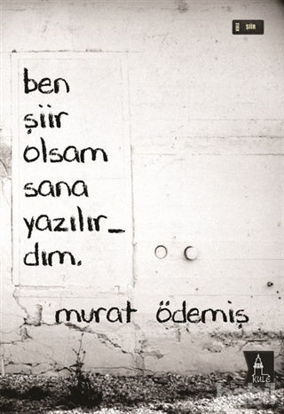 ŞİİR
ben
şiir
olsam
sana
yazılır_
dım.
murat ödemiş
kule